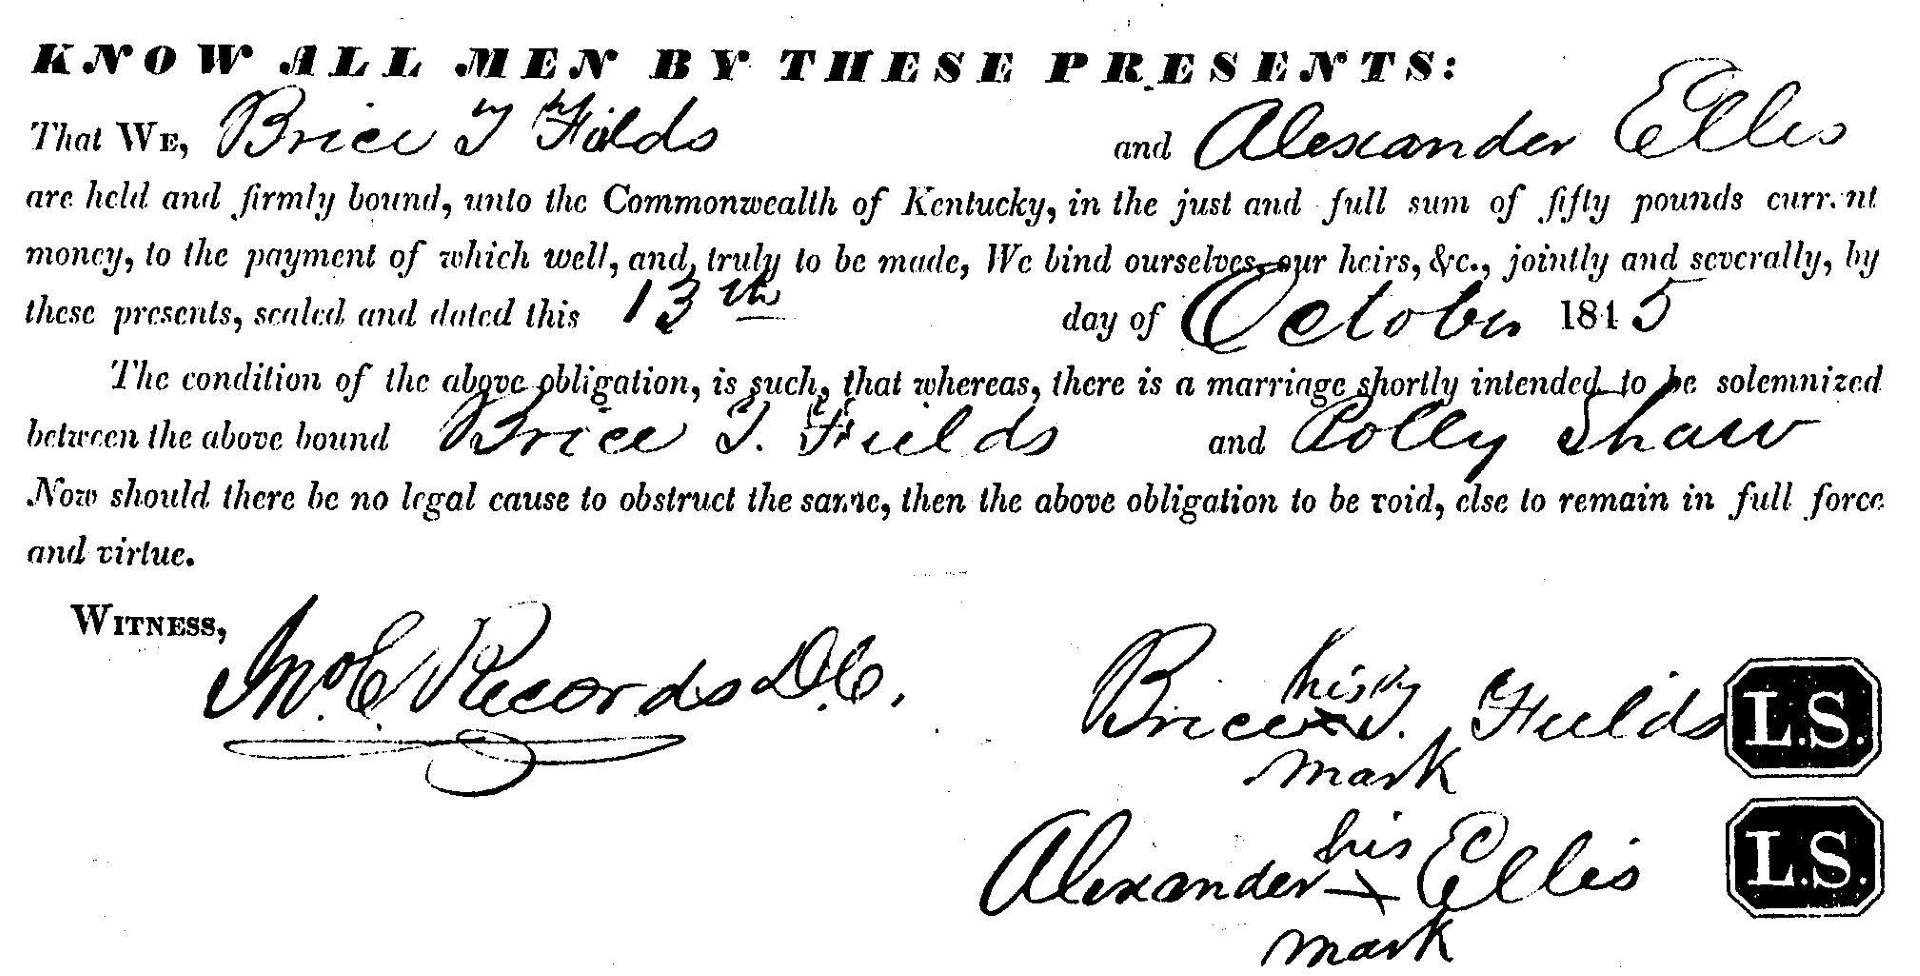 KNOW ALL MEN BY THESE PRESENTS:
That WE, Brice T Filds and Alexander Ellis
are held and firmly bound, unto the Commonwealth of Kentucky, in the just and full sum of fifty pounds current
money, to the payment of which well, and truly to be made, We bind ourselves, our heirs, &c., jointly and severally, by
these presents, sealed and dated this 13th day of October 1845
The condition of the above obligation, is such, that whereas, there is a marriage shortly intended to be solemnized
between the above bound Brice T. Fields and Polly Shaw
Now should there be no legal cause to obstruct the same, then the above obligation to be void, else to remain in full force
and virtue.
WITNESS,
Jno. C. Records D.C.
his
Brice x T. Fields L.S.
mark
his
Alexander x Ellis L.S.
mark